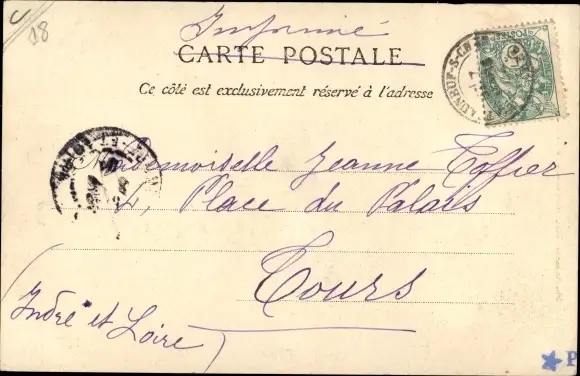 18
Imprimé
CARTE POSTALE
Ce côté est exclusivement réservé à l'adresse
Mademoiselle Jeanne Toffier
4, Place du Palais
Tours
(Indre et Loire)
P